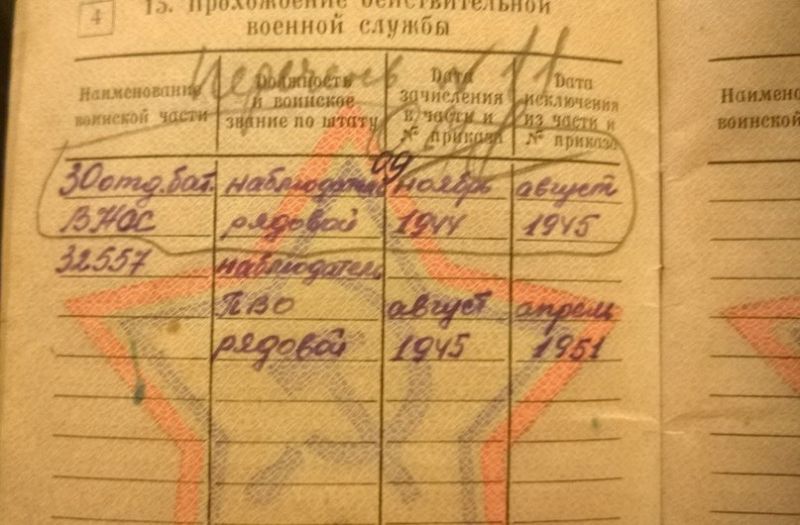 4
15. Прохождение действительной
военной службы
Перечень
11
Наименование воинской части
Должность и воинское звание по штату
Дата зачисления в части и № приказа
Дата исключения из части и № приказа
09
30 отд. бат. наблюдатель ноябрь август
ВНОС рядовой 1944 1945
32557 наблюдатель
ПВО август апрель
рядовой 1945 1951
Наимено
воинской